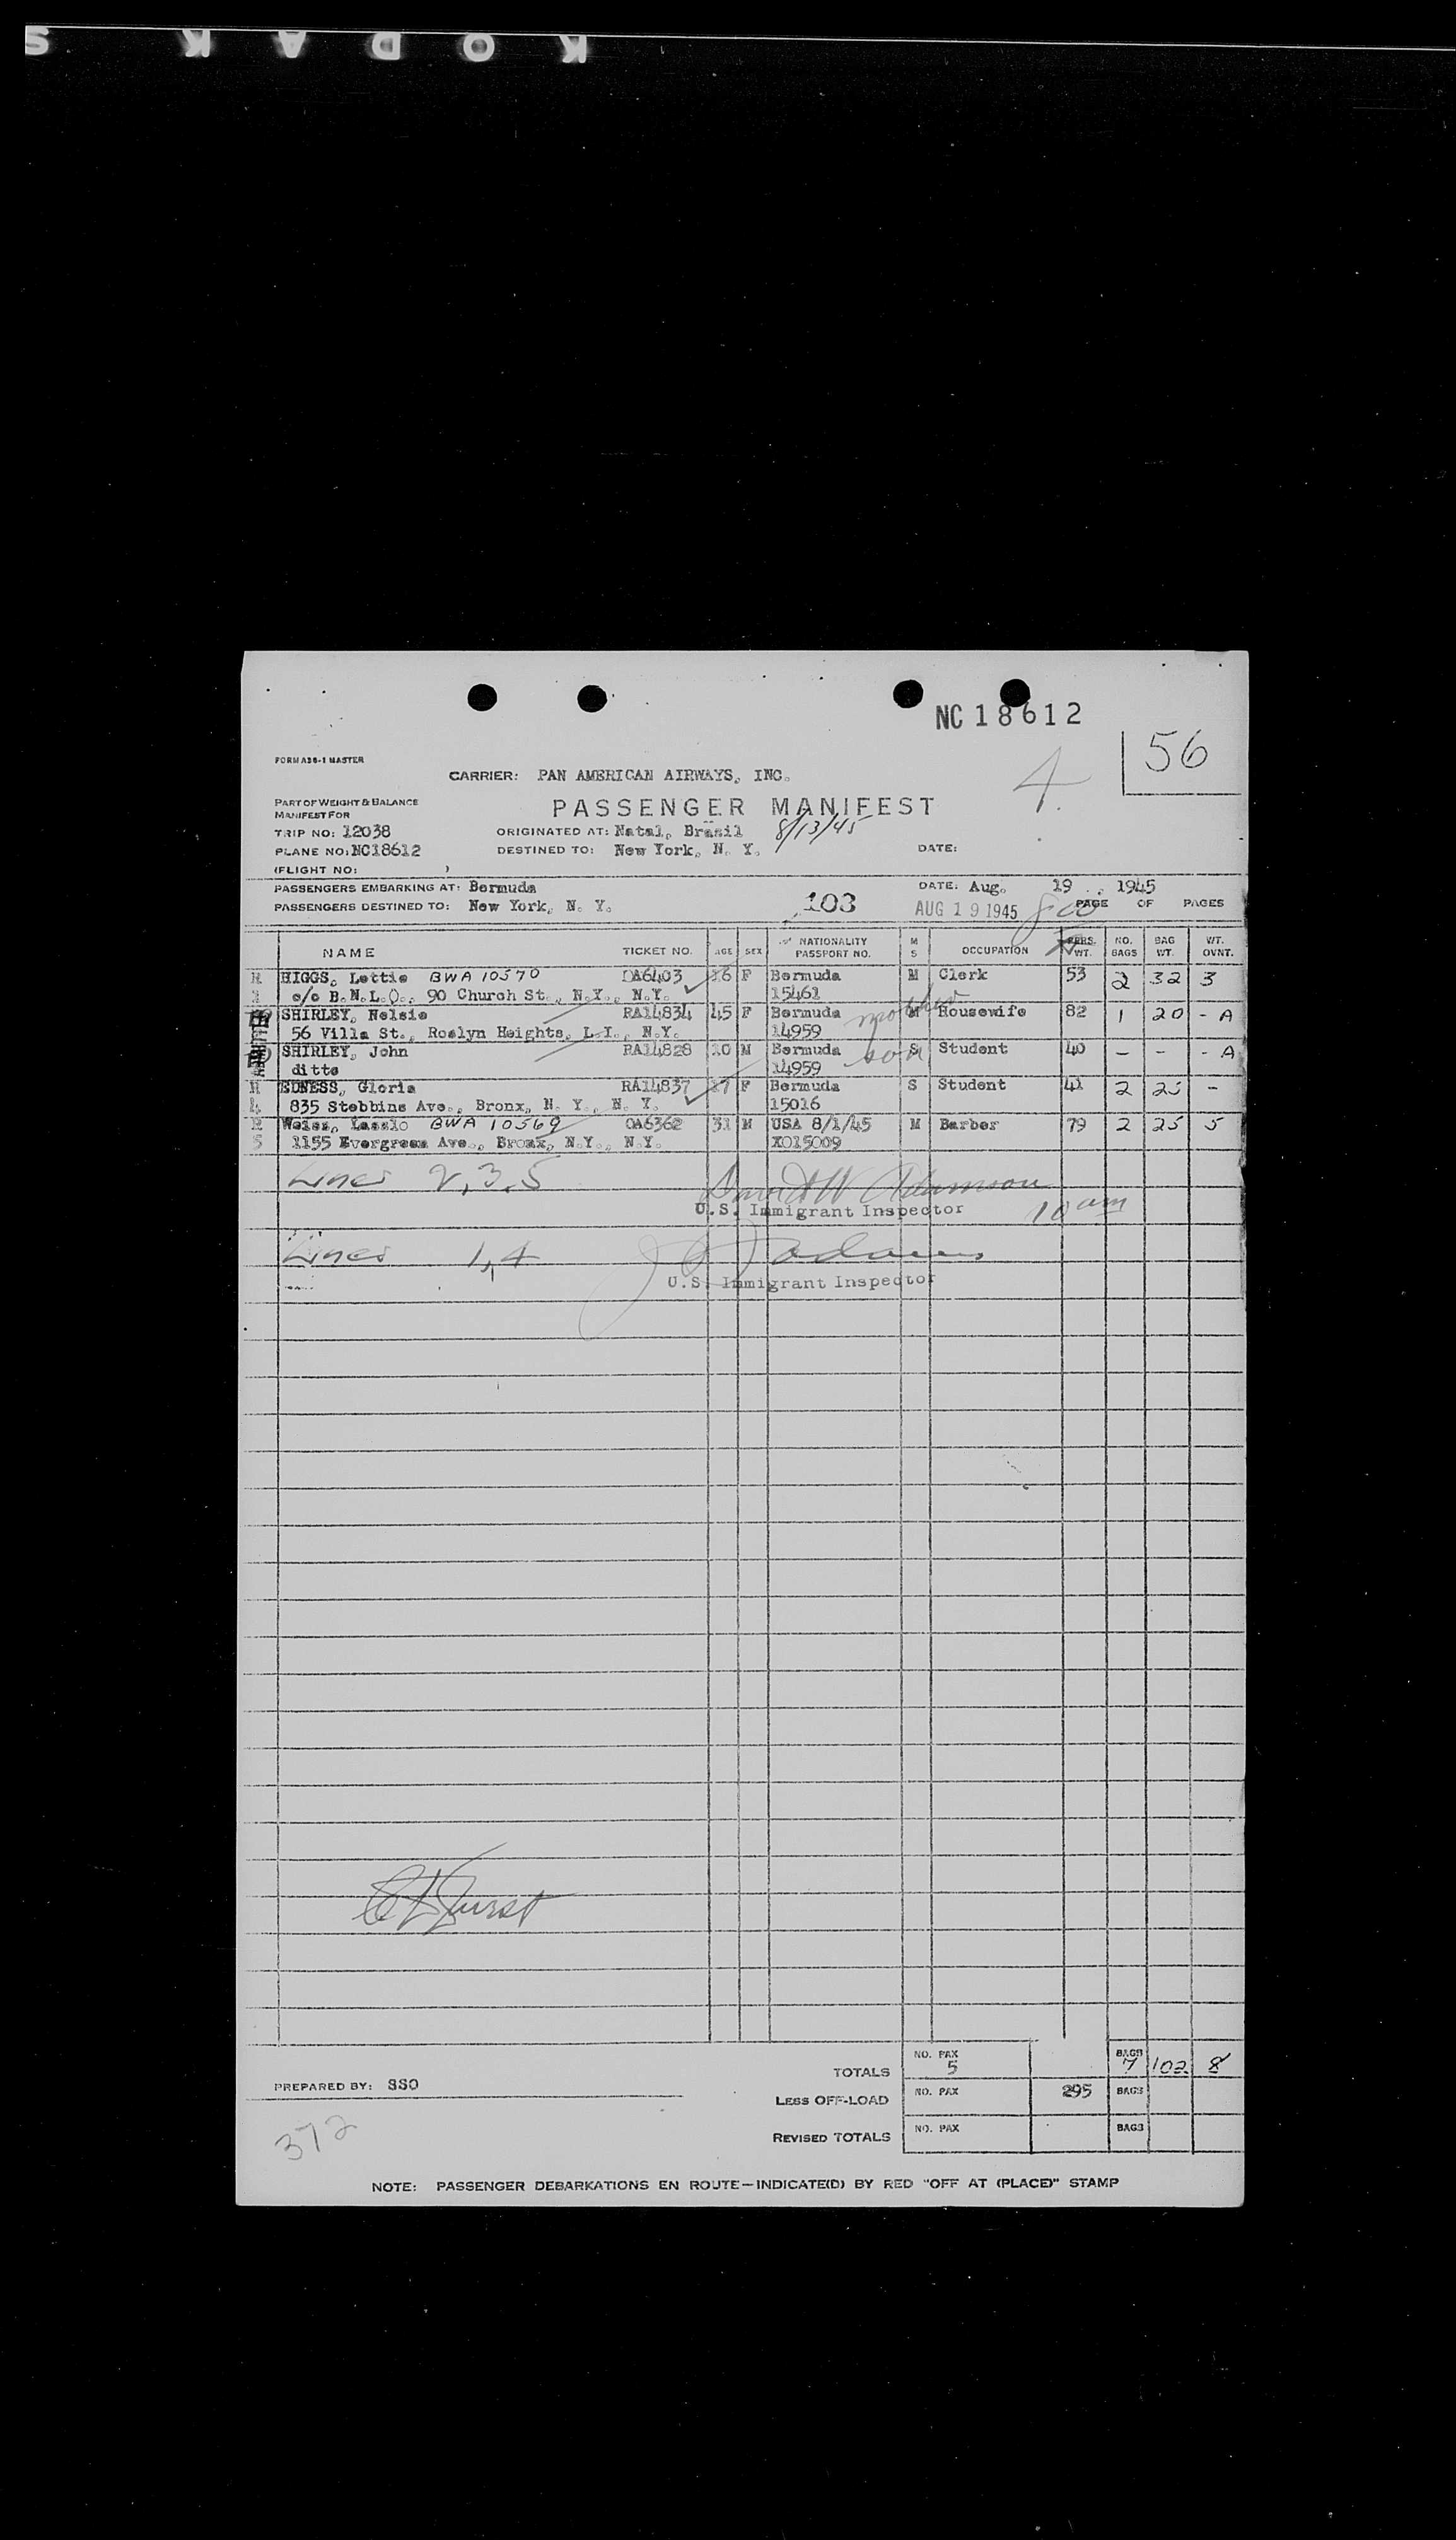 KODAK S
NC18612
56
FORM A36-1 MASTER
4.
CARRIER: PAN AMERICAN AIRWAYS, INC.
PART OF WEIGHT & BALANCE
MANIFEST FOR
PASSENGER MANIFEST
TRIP NO: 12038
ORIGINATED AT: Natal, Brasil 8/13/45
PLANE NO: NC18612
DESTINED TO: New York, N. Y.
DATE:
(FLIGHT NO: )
PASSENGERS EMBARKING AT: Bermuda
DATE: Aug. 19, 1945
PASSENGERS DESTINED TO: New York, N. Y.
103
AUG 19 1945
PAGE OF PAGES
NAME TICKET NO. AGE SEX NATIONALITY PASSPORT NO. M S OCCUPATION PERS. WT. NO. BAGS BAG WT. WT. OVNT.
HIGGS, Lettie BWA 10570 OA6403 F Bermuda M Clerk 53 2 32 3
c/o B.N.L.O., 90 Church St., N.Y., N.Y. 15461
SHIRLEY, Nelsie RA14834 45 F Bermuda mother M Housewife 82 1 20 - A
56 Villa St., Roslyn Heights, L.I., N.Y. 14959
SHIRLEY, John RA14828 10 M Bermuda son S Student 40 - - - A
ditto 14959
EDNESS, Gloria RA14837 17 F Bermuda S Student 41 2 25 -
835 Stebbins Ave., Bronx, N. Y., N. Y. 15016
Weiss, Laszlo BWA 10569 OA6362 31 M USA 8/1/45 M Barber 79 2 25 5
5 1155 Evergreen Ave., Bronx, N.Y., N.Y. X015009
Lines 2,3,5
David W Adamson
U.S. Immigrant Inspector 10 am
Lines 1,4
U.S. Immigrant Inspector
TOTALS NO. PAX 5 BAGS 7 102 8
PREPARED BY: SSO
LESS OFF-LOAD NO. PAX 295 BAGS
372
REVISED TOTALS NO. PAX BAGS
NOTE: PASSENGER DEBARKATIONS EN ROUTE—INDICATE(D) BY RED "OFF AT (PLACE)" STAMP